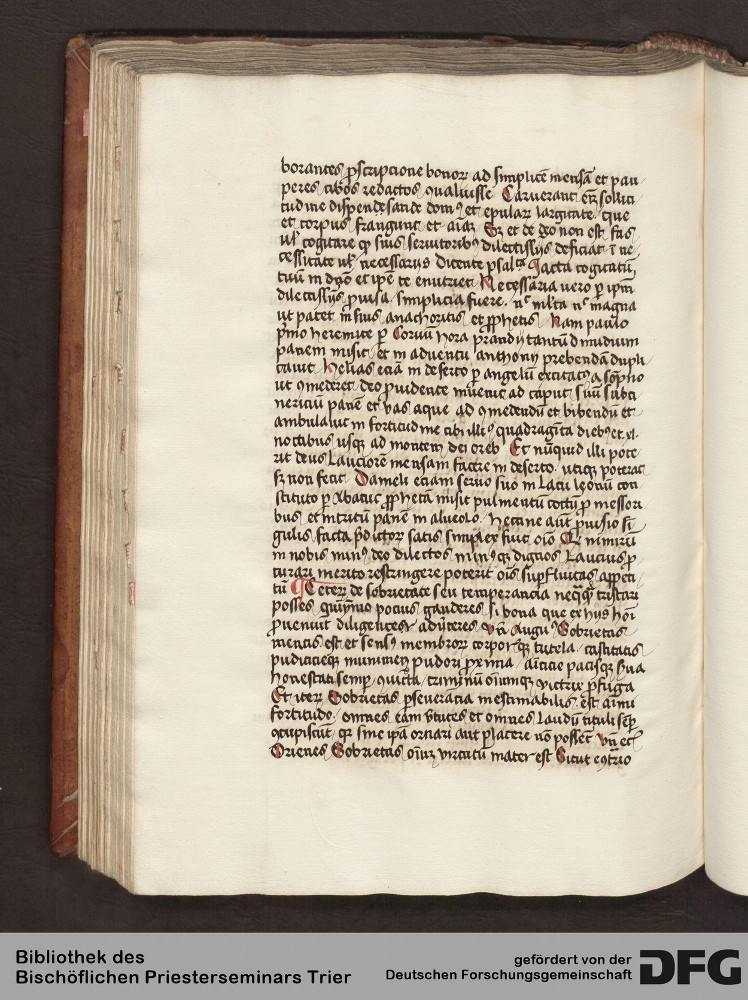 borantes pscripcione bonoꝝ ad simplicē mensā et pau
peres cibos redactos qualuisse Caruerant em̄ sollici
tudine dispensande domꝰ et epulaꝝ largitate que
et corpus frangunt et aīaꝫ Sꝫ et de deo non est fas
ul̓ cogitare ꝙ suis seruitoribꝰ dilectissīs deficiat ī ne
cessitate ul̓ necessariis dicente psalᵗᵃ Iacta cogitatū
tuū in dn̄o et ip̄e te enutriet Necessaria uero ꝑ ip̄m
dilectissīs ꝓuisa simplicia fuere nͨ ml̓ta nͨ magna
ut patet in suis anachoritis et ꝓphetis Nam paulo
p̓mo heremite ꝑ Coruū hora prandii tantū dimidium
panem misit et in aduentu anthonii prebendā dupli
cauit Helias eciā in deserto ꝑ angelū excitatꝰ a sōpno
ut ꝯmederet deo ꝓuidente inuenit ad caput suū subci
nericiū panē et uas aque ad ꝯmedendū et bibendū et
ambulauit in fortitudine cibi illiꝰ quadragīta diebꝰ et xl
noctibus usqꝫ ad montem dei oreb Et nūquid illi pote
rat deus Lauciorē mensam facere in deserto utiqꝫ poterat
sꝫ non fecit Danieli eciam seruo suo in Lacu leonū con
stituto ꝑ Abacuc ꝓphetā misit pulmentū coctū ꝓ messori
bus et intritū panē in alueolo Hec ine aut̄ ꝓuisio sī
gulis facta p̄dictoꝝ satis simplex fuit oīo Qͥ nimirū
in nobis minꝰ deo dilectos minꝰqꝫ dignos Laucius ꝓ
curari merito restringere poterit oīs suꝑfluitas appeti
tū Ceteꝝ de sobrietate seu temperancia neqͣqͣ tristari
posses quīymo pocius gauderes si bona que ex hiis hoī
ꝓueniūt diligēcius aduerteres Vn̄ Augꝰ Sobrietas
mentis est et sensꝰ membroꝝ corporisqꝫ tutela castitatis
pudicicieqꝫ munimen pudori ꝓxima amicicie pacisqꝫ sua
honestati semꝑ ꝯiuncta criminū oīumqꝫ victrix ꝓfuga
Et iteꝝ Sobrietas ꝑseuerācia inestimabilis est animi
fortitudo omnes eam ꝟtutes et omnes Laudū tituli sēꝑ
ꝯcupiscūt qꝛ sine ipā ornari aut placere nō possēt Vn̄ ec̄
Orienes Sobrietas oīuꝫ virtutū mater est Sicut ecōtrio
Bibliothek des
Bischöflichen Priesterseminars Trier
gefördert von der
Deutschen Forschungsgemeinschaft
DFG